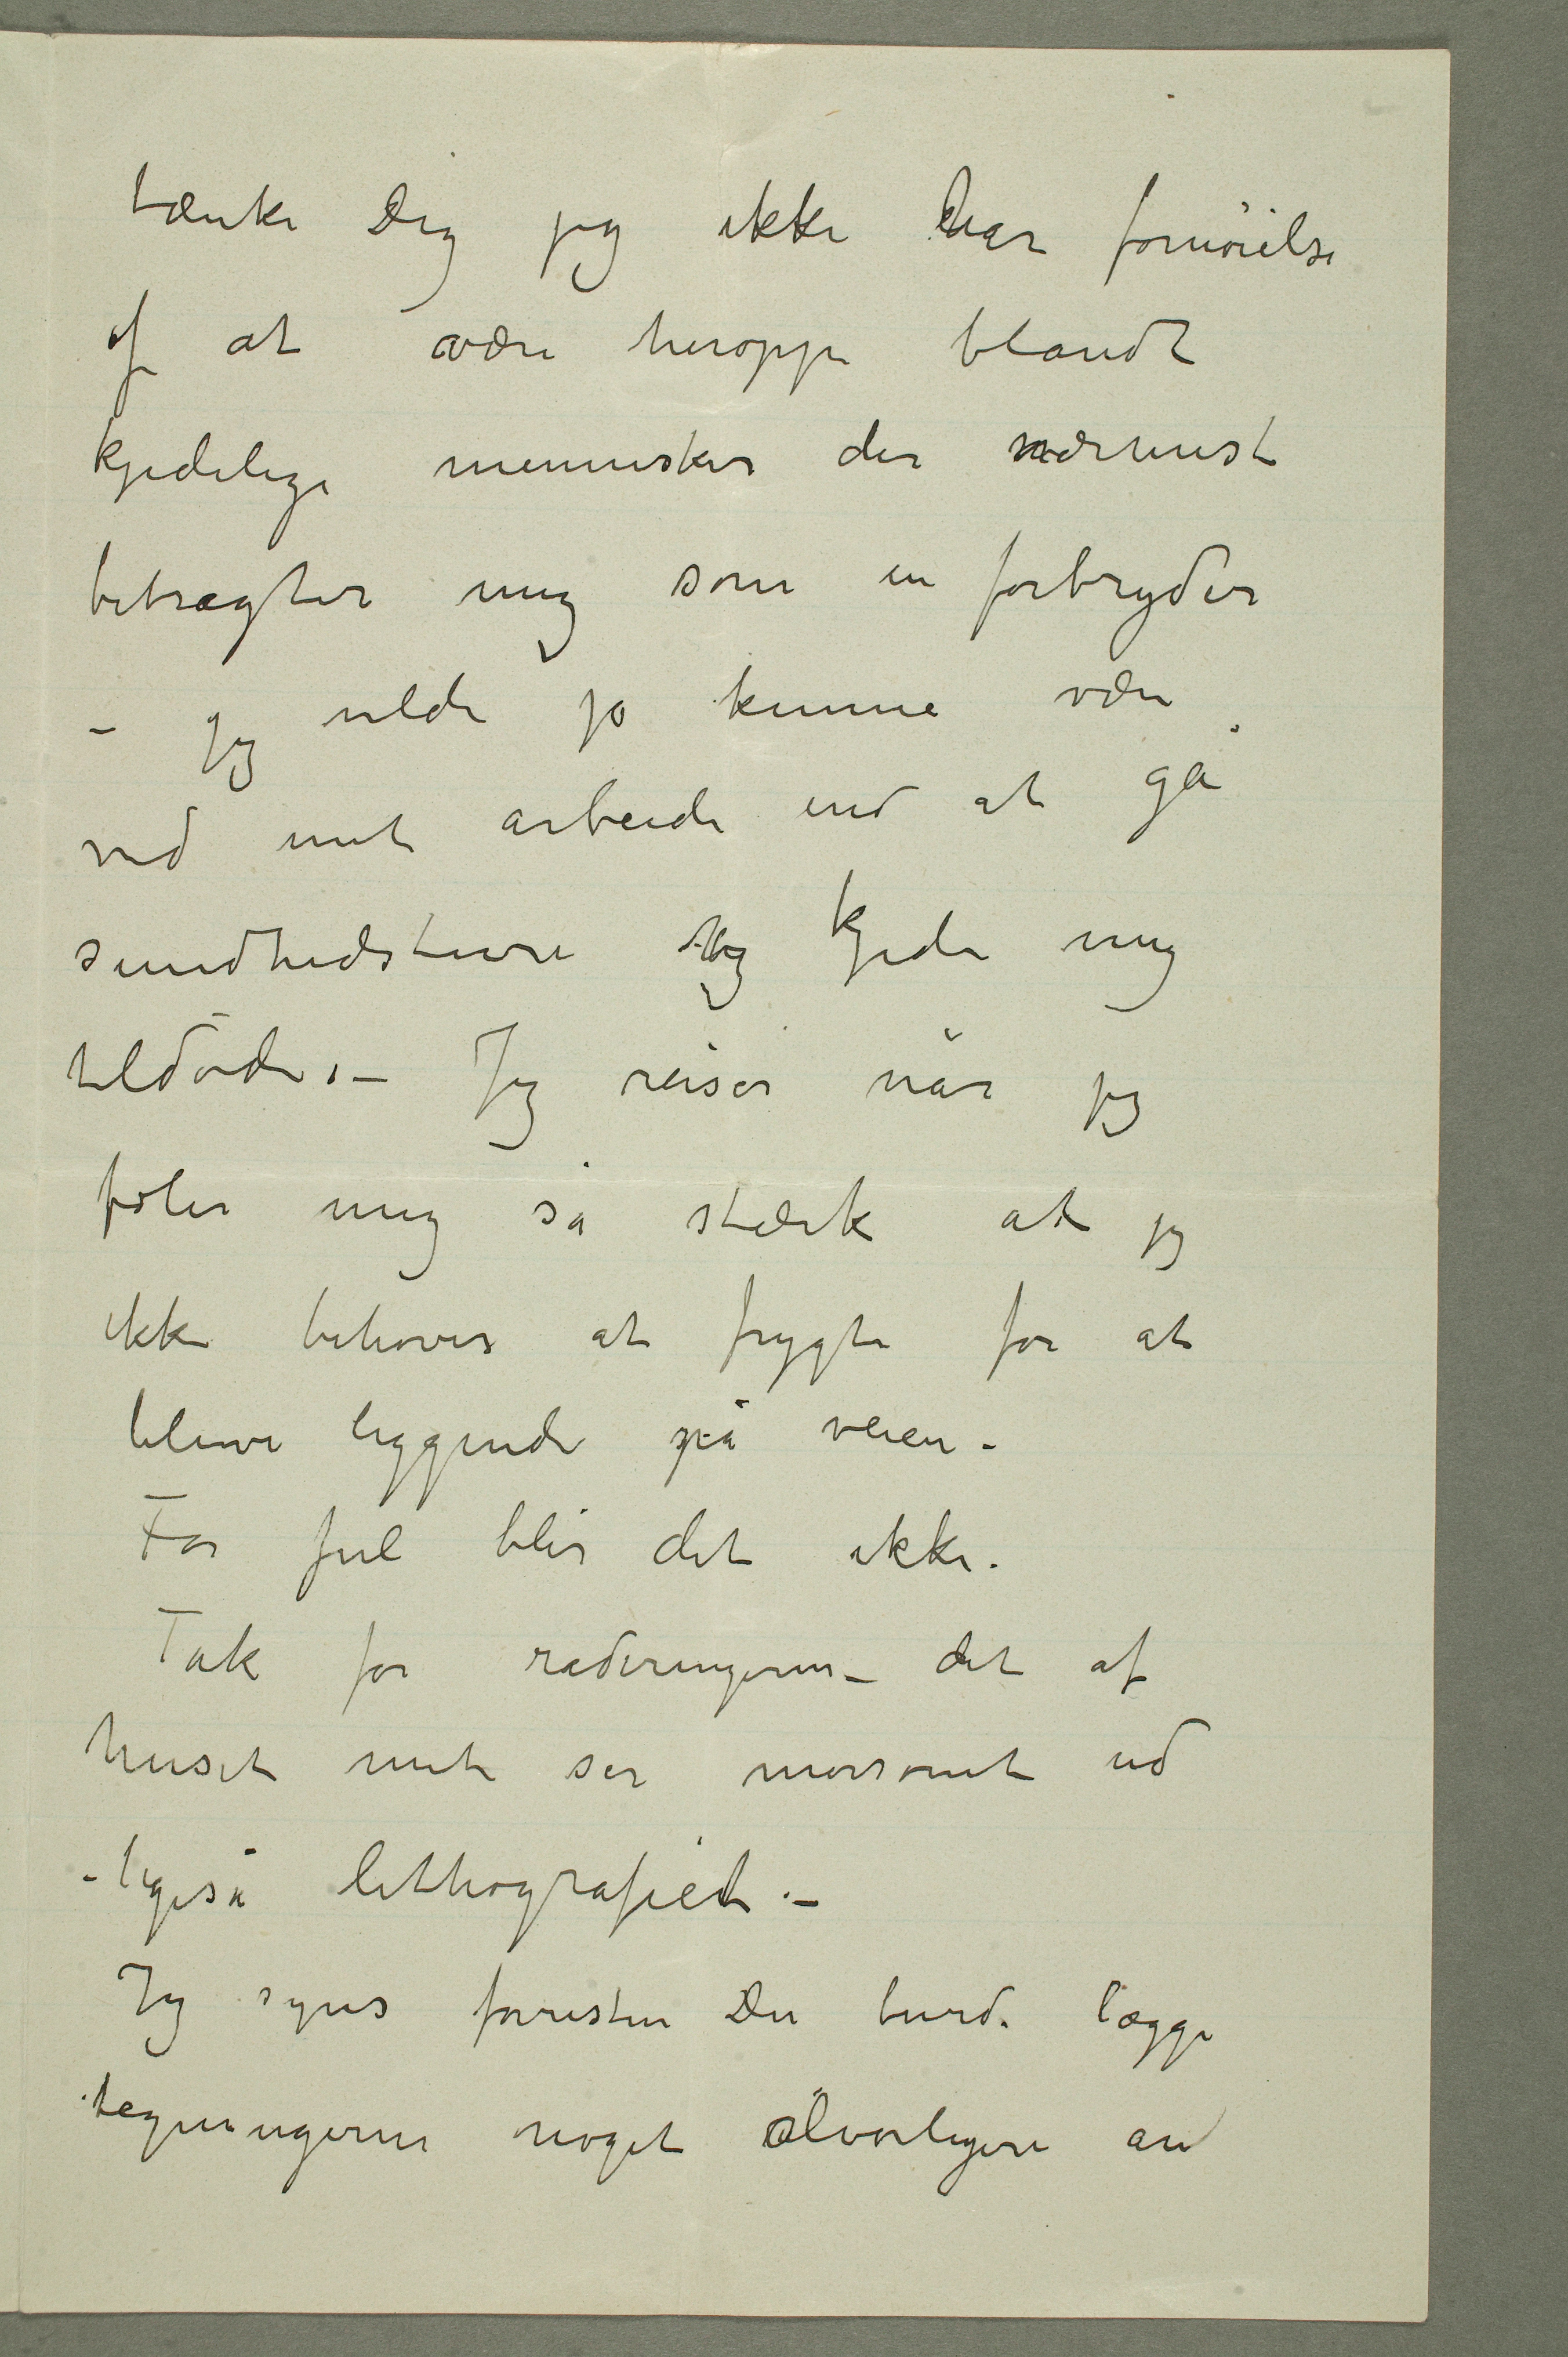 tænke Dig jeg ikke har fornöielse
af at være heroppe blandt
kjedelige mennesker der nærmest
betragter mig som en forbryder
– jeg vilde jo kunne være
ved mit arbeide end at gå
sundhedsture og kjede mig
tildöde. – Jeg reiser når jeg
föler mig så stærk at jeg
ikke behöver at frygte for at
blive liggende på veien –
För jul blir det ikke.
Tak for raderingerne – det af
huset mit ser morsomt ud
– ligeså lithografiet. –
Jeg synes forresten Du burde lægge
tegningerne noget alvorligere an